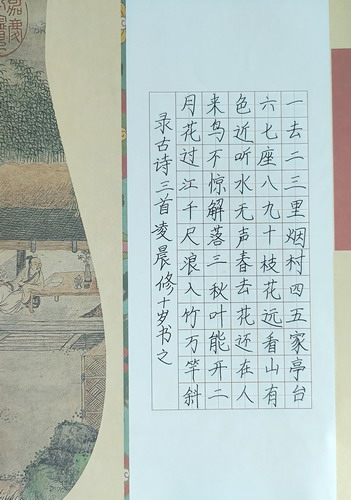 一去二三里烟村四五家亭台
六七座八九十枝花远看山有
色近听水无声春去花还在人
来鸟不惊解落三秋叶能开二
月花过江千尺浪入竹万竿斜
录古诗三首凌晨修十岁书之